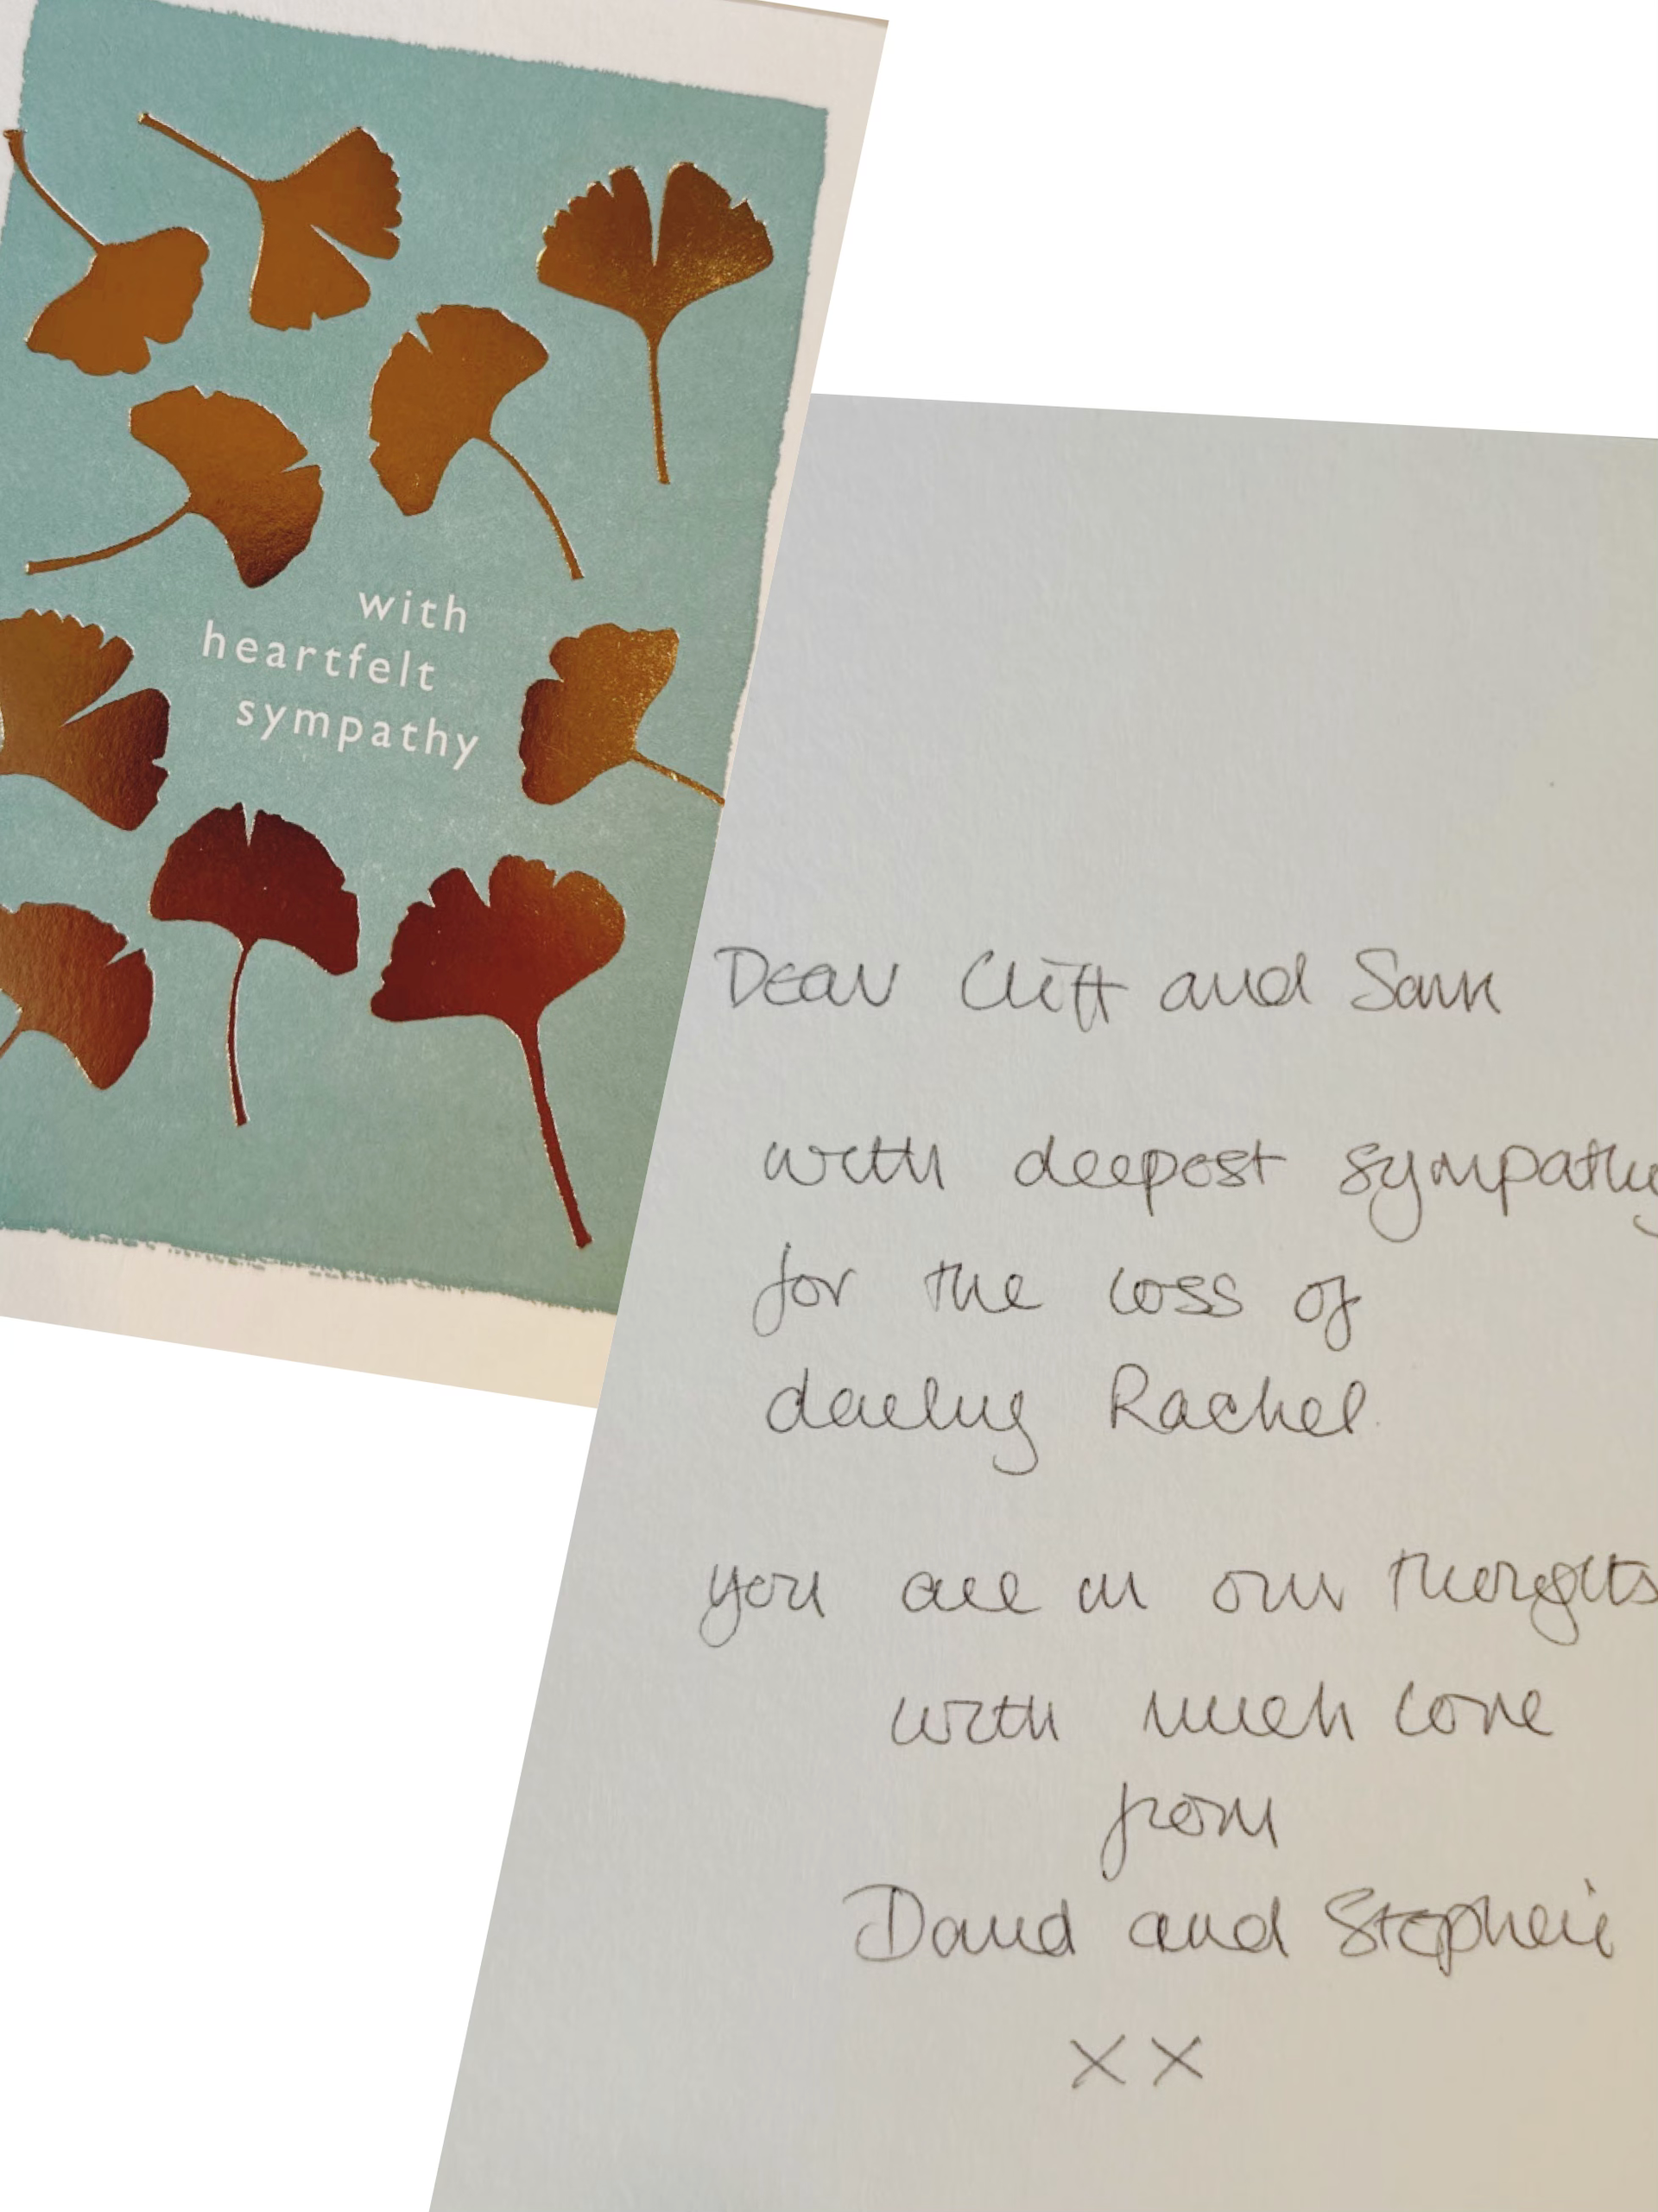 with
heartfelt
sympathy
Dear Cliff and
with deepest sympathy
for the loss of
darling Rachel.
you are in our thoughts
with much love
from
David and
XX